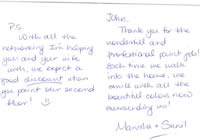 P.S.
With all the
networking I'm helping
you and your wife
with, we expect a
good discount when
you paint our second
floor! ☺
John,
Thank you for the
wonderful and
professional paint job!
Each time we walk
into the home, we
smile with all the
beautiful colors now
surrounding us!
Manisha + Sunil